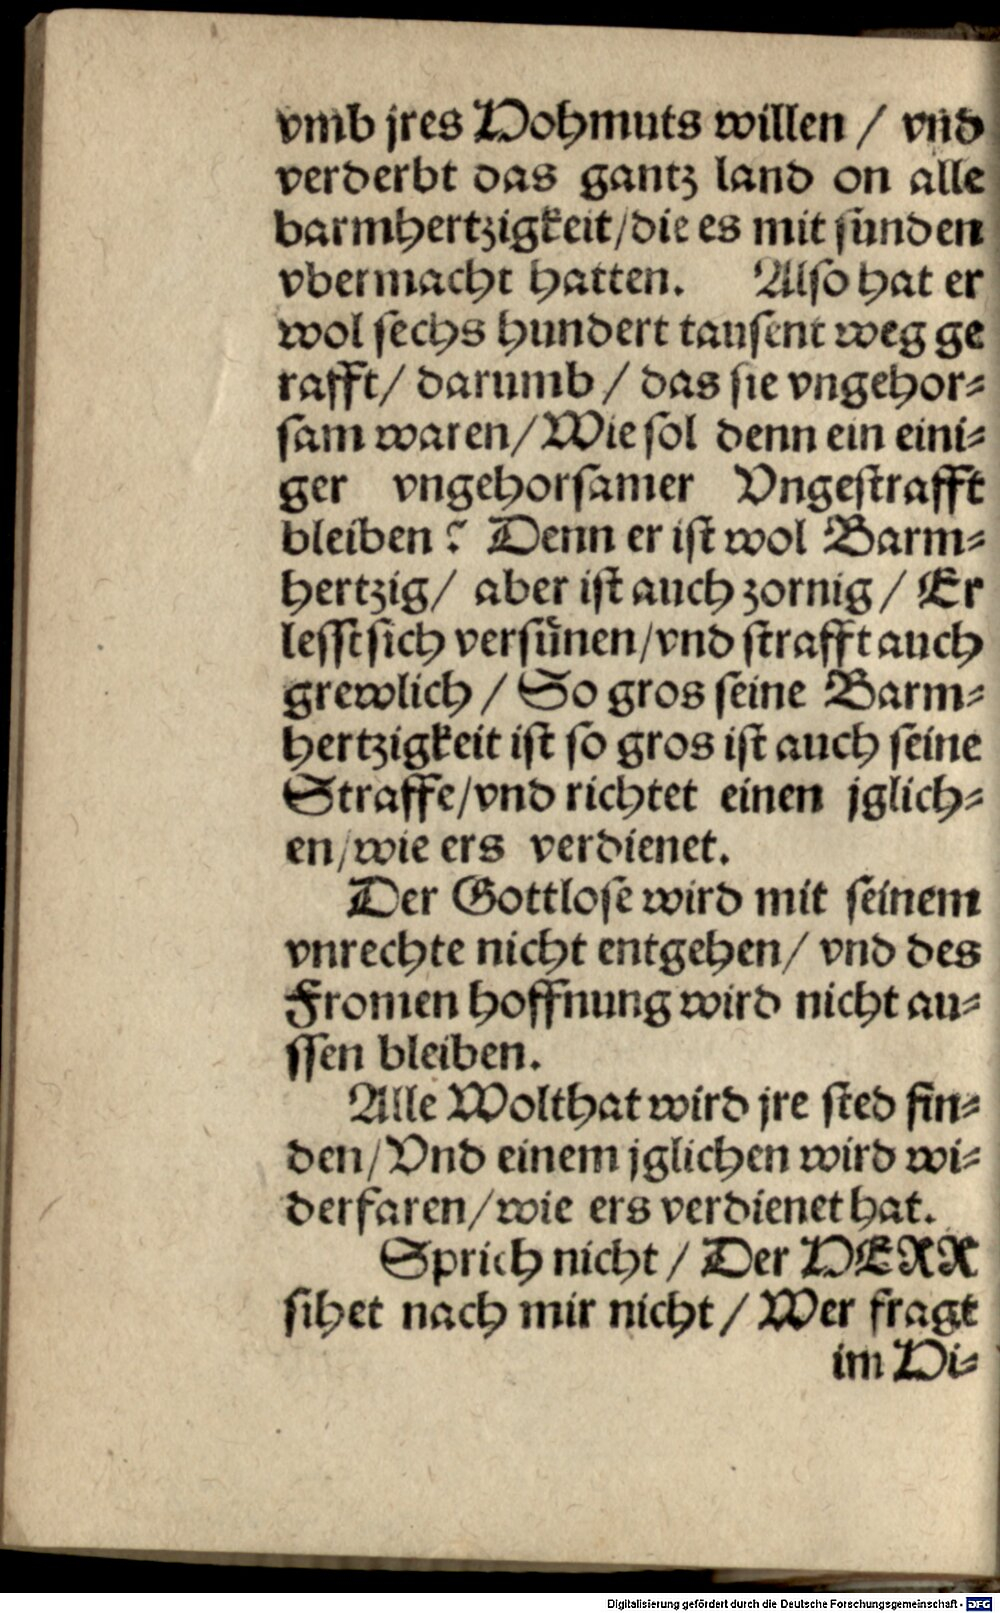 vmb jres Hohmuts willen / vnd
verderbt das gantz land on alle
barmhertzigkeit/die es mit sunden
vbermacht hatten. Also hat er
wol sechs hundert tausent weg ge
rafft/ darumb / das sie vngehor⸗
sam waren/Wie sol denn ein eini⸗
ger vngehorsamer Vngestrafft
bleiben? Denn er ist wol Barm⸗
hertzig/ aber ist auch zornig / Er
lesst sich versünen/vnd strafft auch
grewlich / So gros seine Barm⸗
hertzigkeit ist so gros ist auch seine
Straffe/vnd richtet einen jglich⸗
en/wie ers verdienet.
Der Gottlose wird mit seinem
vnrechte nicht entgehen/ vnd des
Fromen hoffnung wird nicht au⸗
ssen bleiben.
Alle Wolthat wird jre sted fin⸗
den/Vnd einem jglichen wird wi⸗
derfaren/wie ers verdienet hat.
Sprich nicht / Der HERR
sihet nach mir nicht / Wer fragt
im Hi⸗
Digitalisierung gefördert durch die Deutsche Forschungsgemeinschaft - DFG